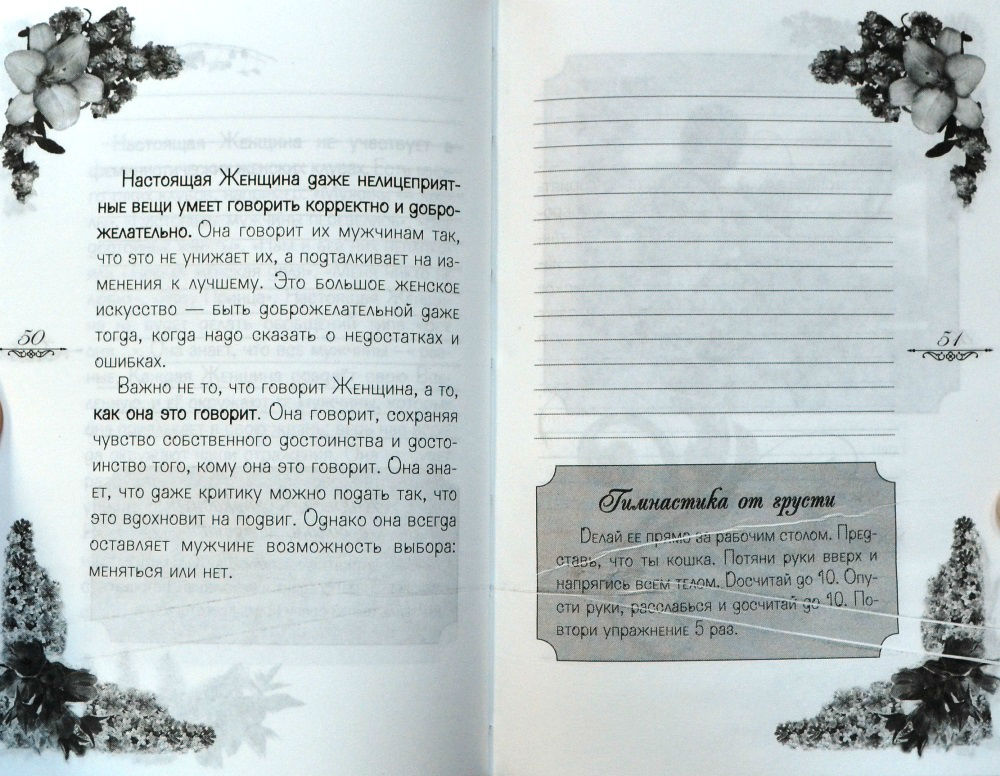 Настоящая Женщина даже нелицеприят-
ные вещи умеет говорить корректно и добро-
желательно. Она говорит их мужчинам так,
что это не унижает их, а подталкивает на из-
менения к лучшему. Это большое женское
искусство — быть доброжелательной даже
тогда, когда надо сказать о недостатках и
ошибках.
Важно не то, что говорит Женщина, а то,
как она это говорит. Она говорит, сохраняя
чувство собственного достоинства и досто-
инство того, кому она это говорит. Она зна-
ет, что даже критику можно подать так, что
это вдохновит на подвиг. Однако она всегда
оставляет мужчине возможность выбора:
меняться или нет.
50
51
Гимнастика от грусти
Делай ее прямо за рабочим столом. Пред-
ставь, что ты кошка. Потяни руки вверх и
напрягись всем телом. Досчитай до 10. Опу-
сти руки, расслабься и досчитай до 10. По-
втори упражнение 5 раз.